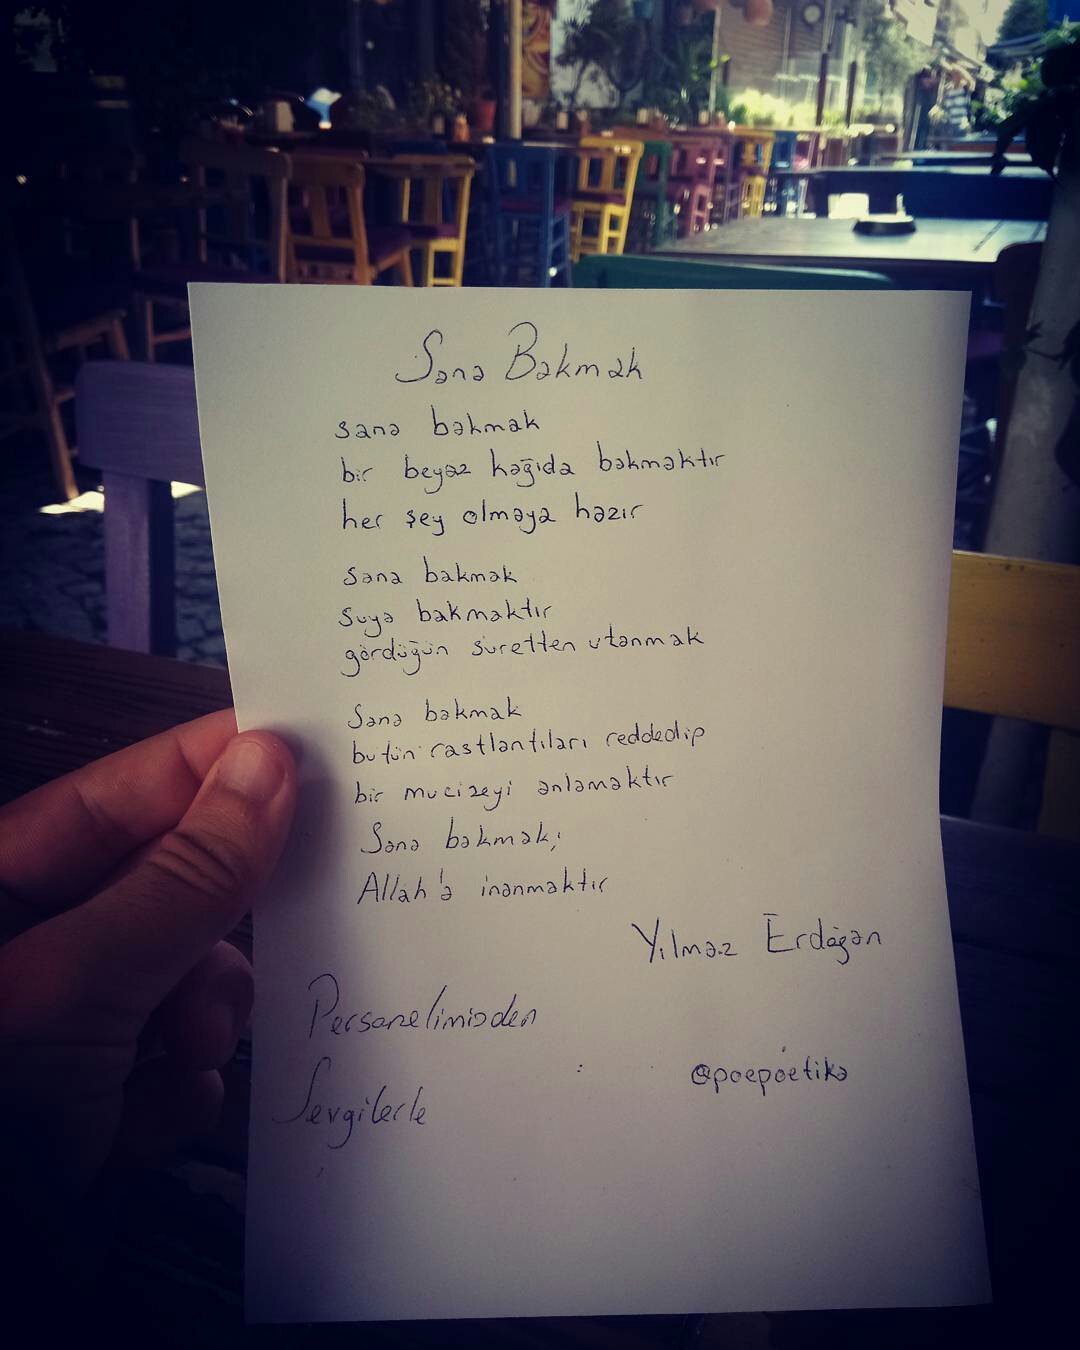 Sana Bakmak
sana bakmak
bir beyaz kağıda bakmaktır
her şey olmaya hazır
sana bakmak
suya bakmaktır
gördüğün suretten utanmak
sana bakmak
bütün rastlantıları reddedip
bir mucizeyi anlamaktır
Sana bakmak;
Allah'a inanmaktır
Yılmaz Erdoğan
Personelimizden
Sevgilerle
@poepoetika